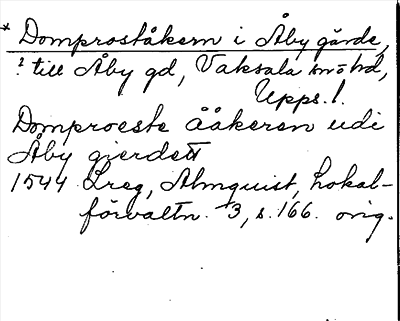 * Domproståkern i Åby gärde,
? till Åby gd, Vaksala sn o hd,
Upps. l.
Domproeste ååkeren udi
Åby gierdett
1544 Lreg, Almquist, Lokal-
förvaltn. 3, s. 166. orig.